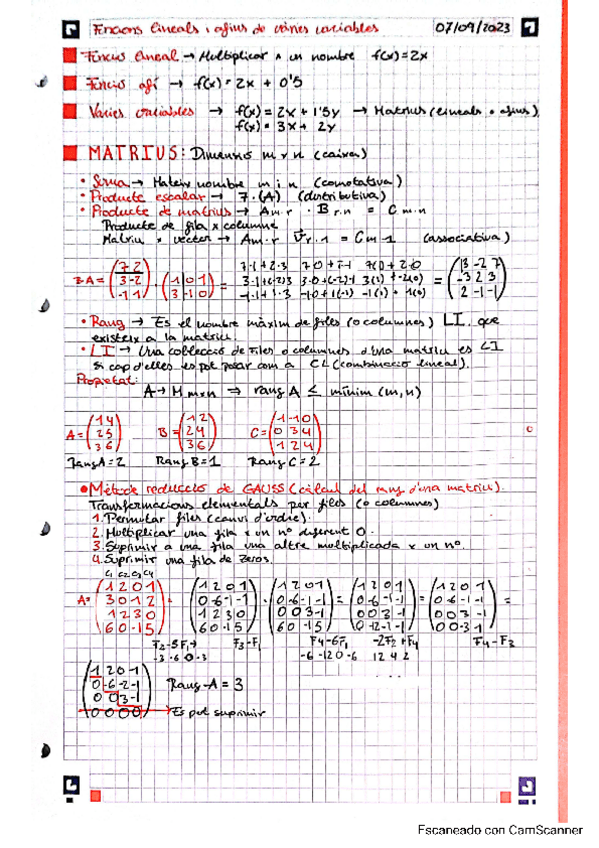 Funcions lineals i afins de vàries variables 07/09/2023
Funció lineal → Multiplicar x un nombre f(x)=2x
Funció afí → f(x)=2x + 0'5
Varies variables → f(x)= 2x + 1'5y → Matrius (lineals o afins)
f(x) = 3x + 2y
MATRIUS: Dimensió m x n (caixa)
• Suma → Mateix nombre m i n (conmutativa)
• Producte escalar → 7·(A) (distributiva)
• Producte de matrius → Am·r · Br·n = Cm·n
Producte de fila x columna
Matriu x vector → Am·r Vr·1 = Cm·1 (associativa)
• Rang → És el nombre màxim de files (o columnes) LI que
existeix a la matriu.
• LI → Una col·lecció de files o columnes d'una matriu és LI
si cap d'elles es pot posar com a CL (combinació lineal).
Propietat:
A → Mmxn ⇒ rang A ≤ mínim (m,n)
A= (1 4
2 5
3 6)
B= (1 2
2 4
3 6)
C= (1 -1 0
0 3 4
1 2 4)
Rang A = 2 Rang B = 1 Rang C = 2
• Mètode reducció de GAUSS (càlcul del rang d'una matriu).
Transformacions elementals per files (o columnes)
1. Permutar files (canvi d'ordre).
2. Multiplicar una fila x un nº diferent 0.
3. Suprimir a una fila una altre multiplicada x un nº.
4. Suprimir una fila de zeros.
C1 C2 C3 C4
F3-F1
F4-6F1
-2F2+F4
F4-F3
-6 -12 0 -6
12 4 2
Rang A = 3
Es pot suprimir
Escaneado con CamScanner